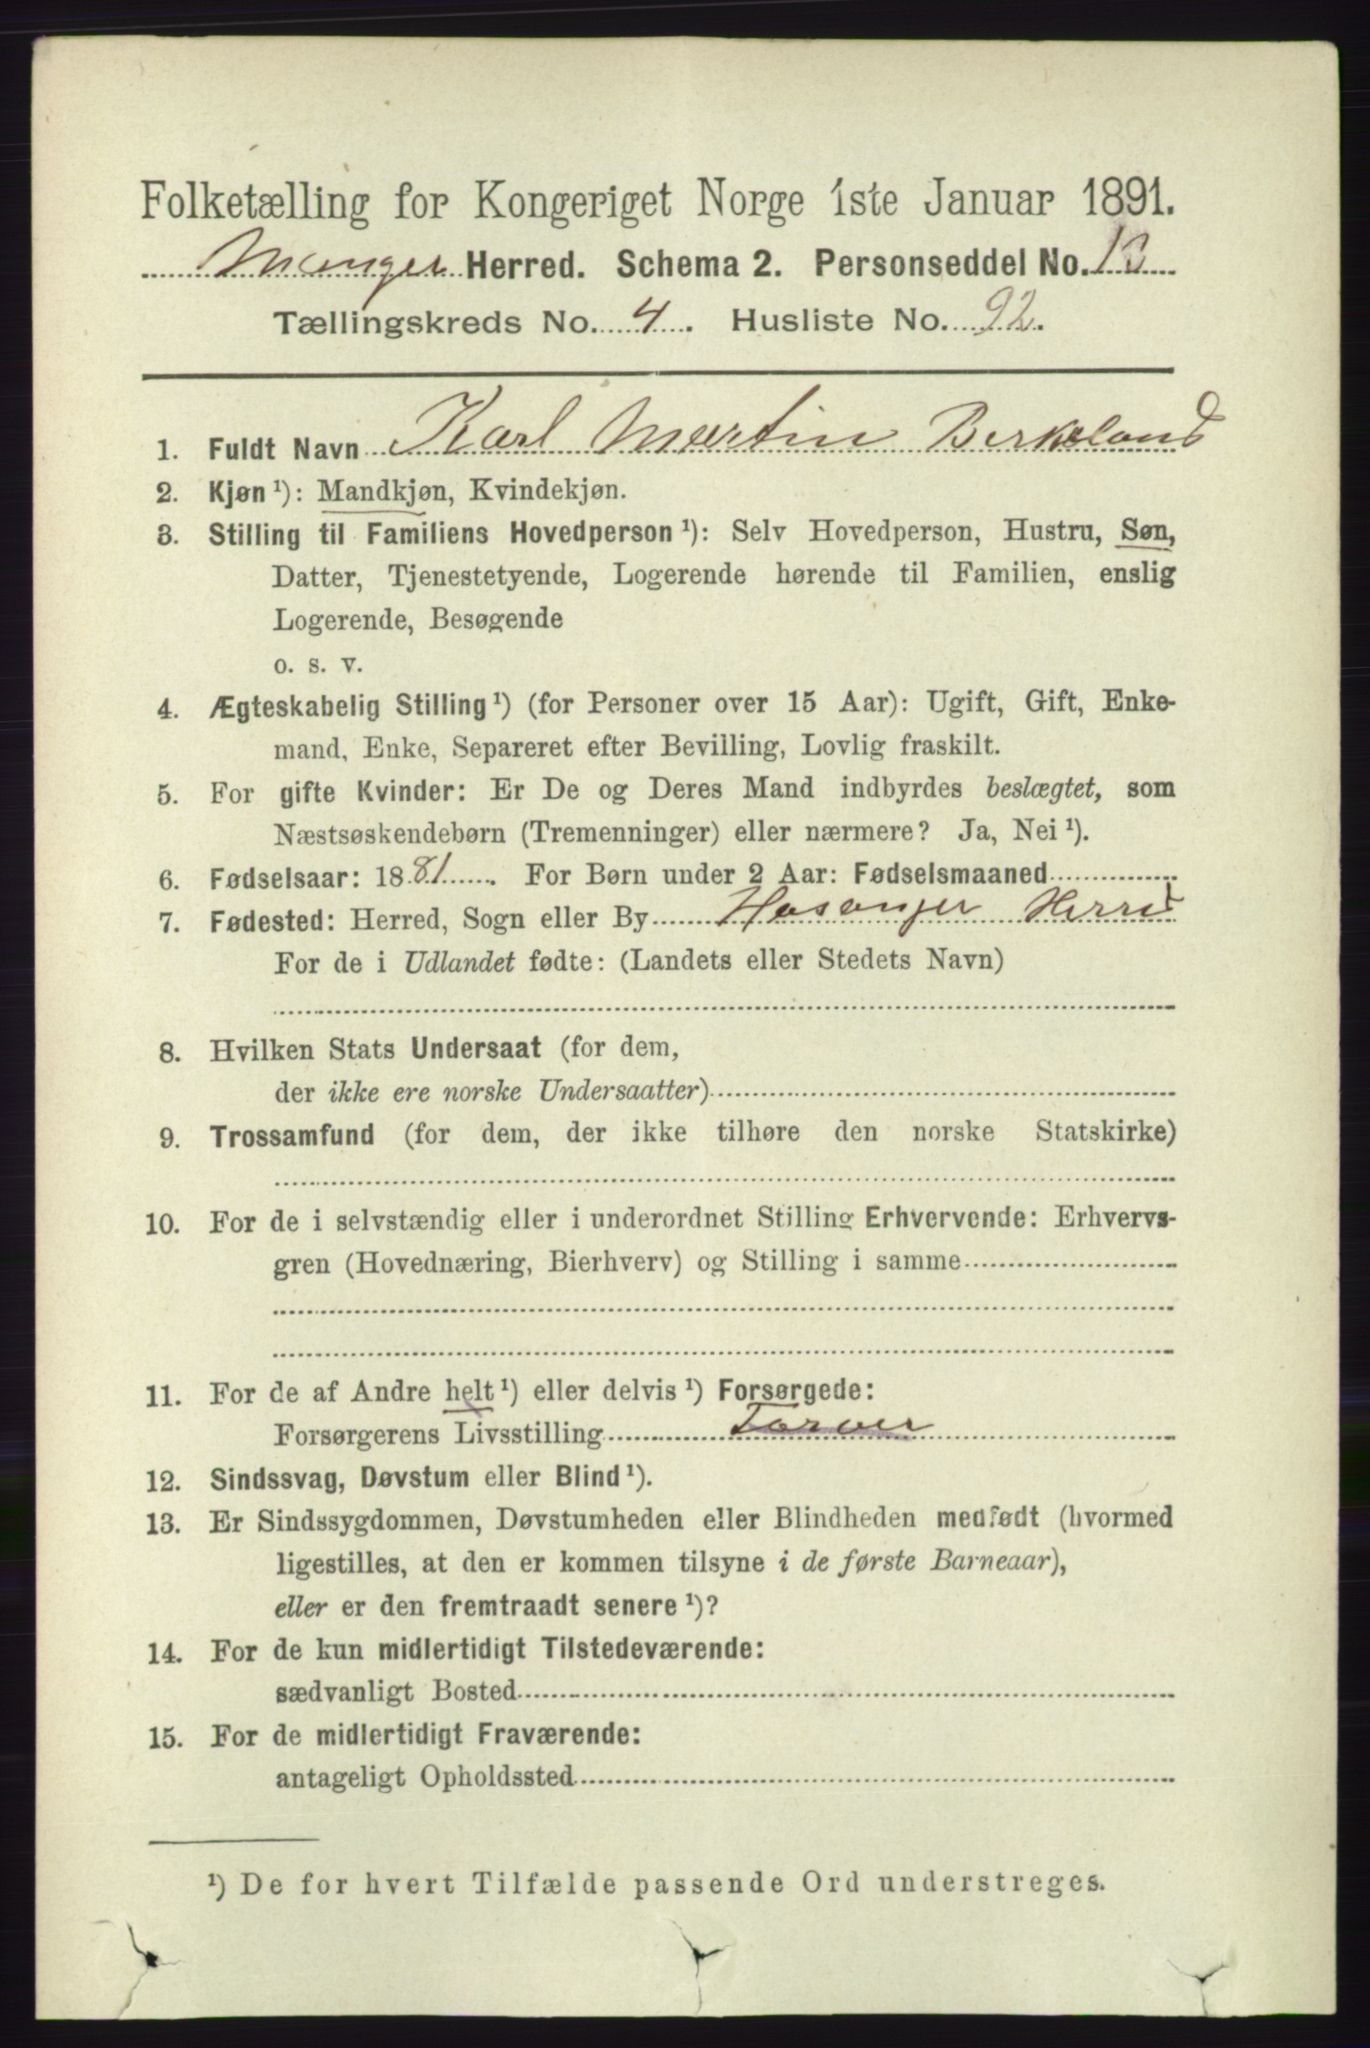 Folketælling for Kongeriget Norge 1ste Januar 1891.
Manger Herred. Schema 2. Personseddel No. 13
Tællingskreds No. 4. Husliste No. 92.
1. Fuldt Navn Karl Martin Birkeland
2. Kjøn ¹): Mandkjøn, Kvindekjøn.
3. Stilling til Familiens Hovedperson ¹): Selv Hovedperson, Hustru, Søn,
Datter, Tjenestetyende, Logerende hørende til Familien, enslig
Logerende, Besøgende
o. s. v.
4. Ægteskabelig Stilling ¹) (for Personer over 15 Aar): Ugift, Gift, Enke-
mand, Enke, Separeret efter Bevilling, Lovlig fraskilt.
5. For gifte Kvinder: Er De og Deres Mand indbyrdes beslægtet, som
Næstsøskendebørn (Tremenninger) eller nærmere? Ja, Nei ¹).
6. Fødselsaar: 1881. For Børn under 2 Aar: Fødselsmaaned
7. Fødested: Herred, Sogn eller By Hosanger Herred
For de i Udlandet fødte: (Landets eller Stedets Navn)
8. Hvilken Stats Undersaat (for dem,
der ikke ere norske Undersaatter)
9. Trossamfund (for dem, der ikke tilhøre den norske Statskirke)
10. For de i selvstændig eller i underordnet Stilling Erhvervende: Erhvervs-
gren (Hovednæring, Bierhverv) og Stilling i samme
11. For de af Andre helt ¹) eller delvis ¹) Forsørgede:
Forsørgerens Livsstilling
12. Sindssvag, Døvstum eller Blind ¹).
13. Er Sindssygdommen, Døvstumheden eller Blindheden medfødt (hvormed
ligestilles, at den er kommen tilsyne i de første Barneaar),
eller er den fremtraadt senere ¹)?
14. For de kun midlertidigt Tilstedeværende:
sædvanligt Bosted
15. For de midlertidigt Fraværende:
antageligt Opholdssted
¹) De for hvert Tilfælde passende Ord understreges.